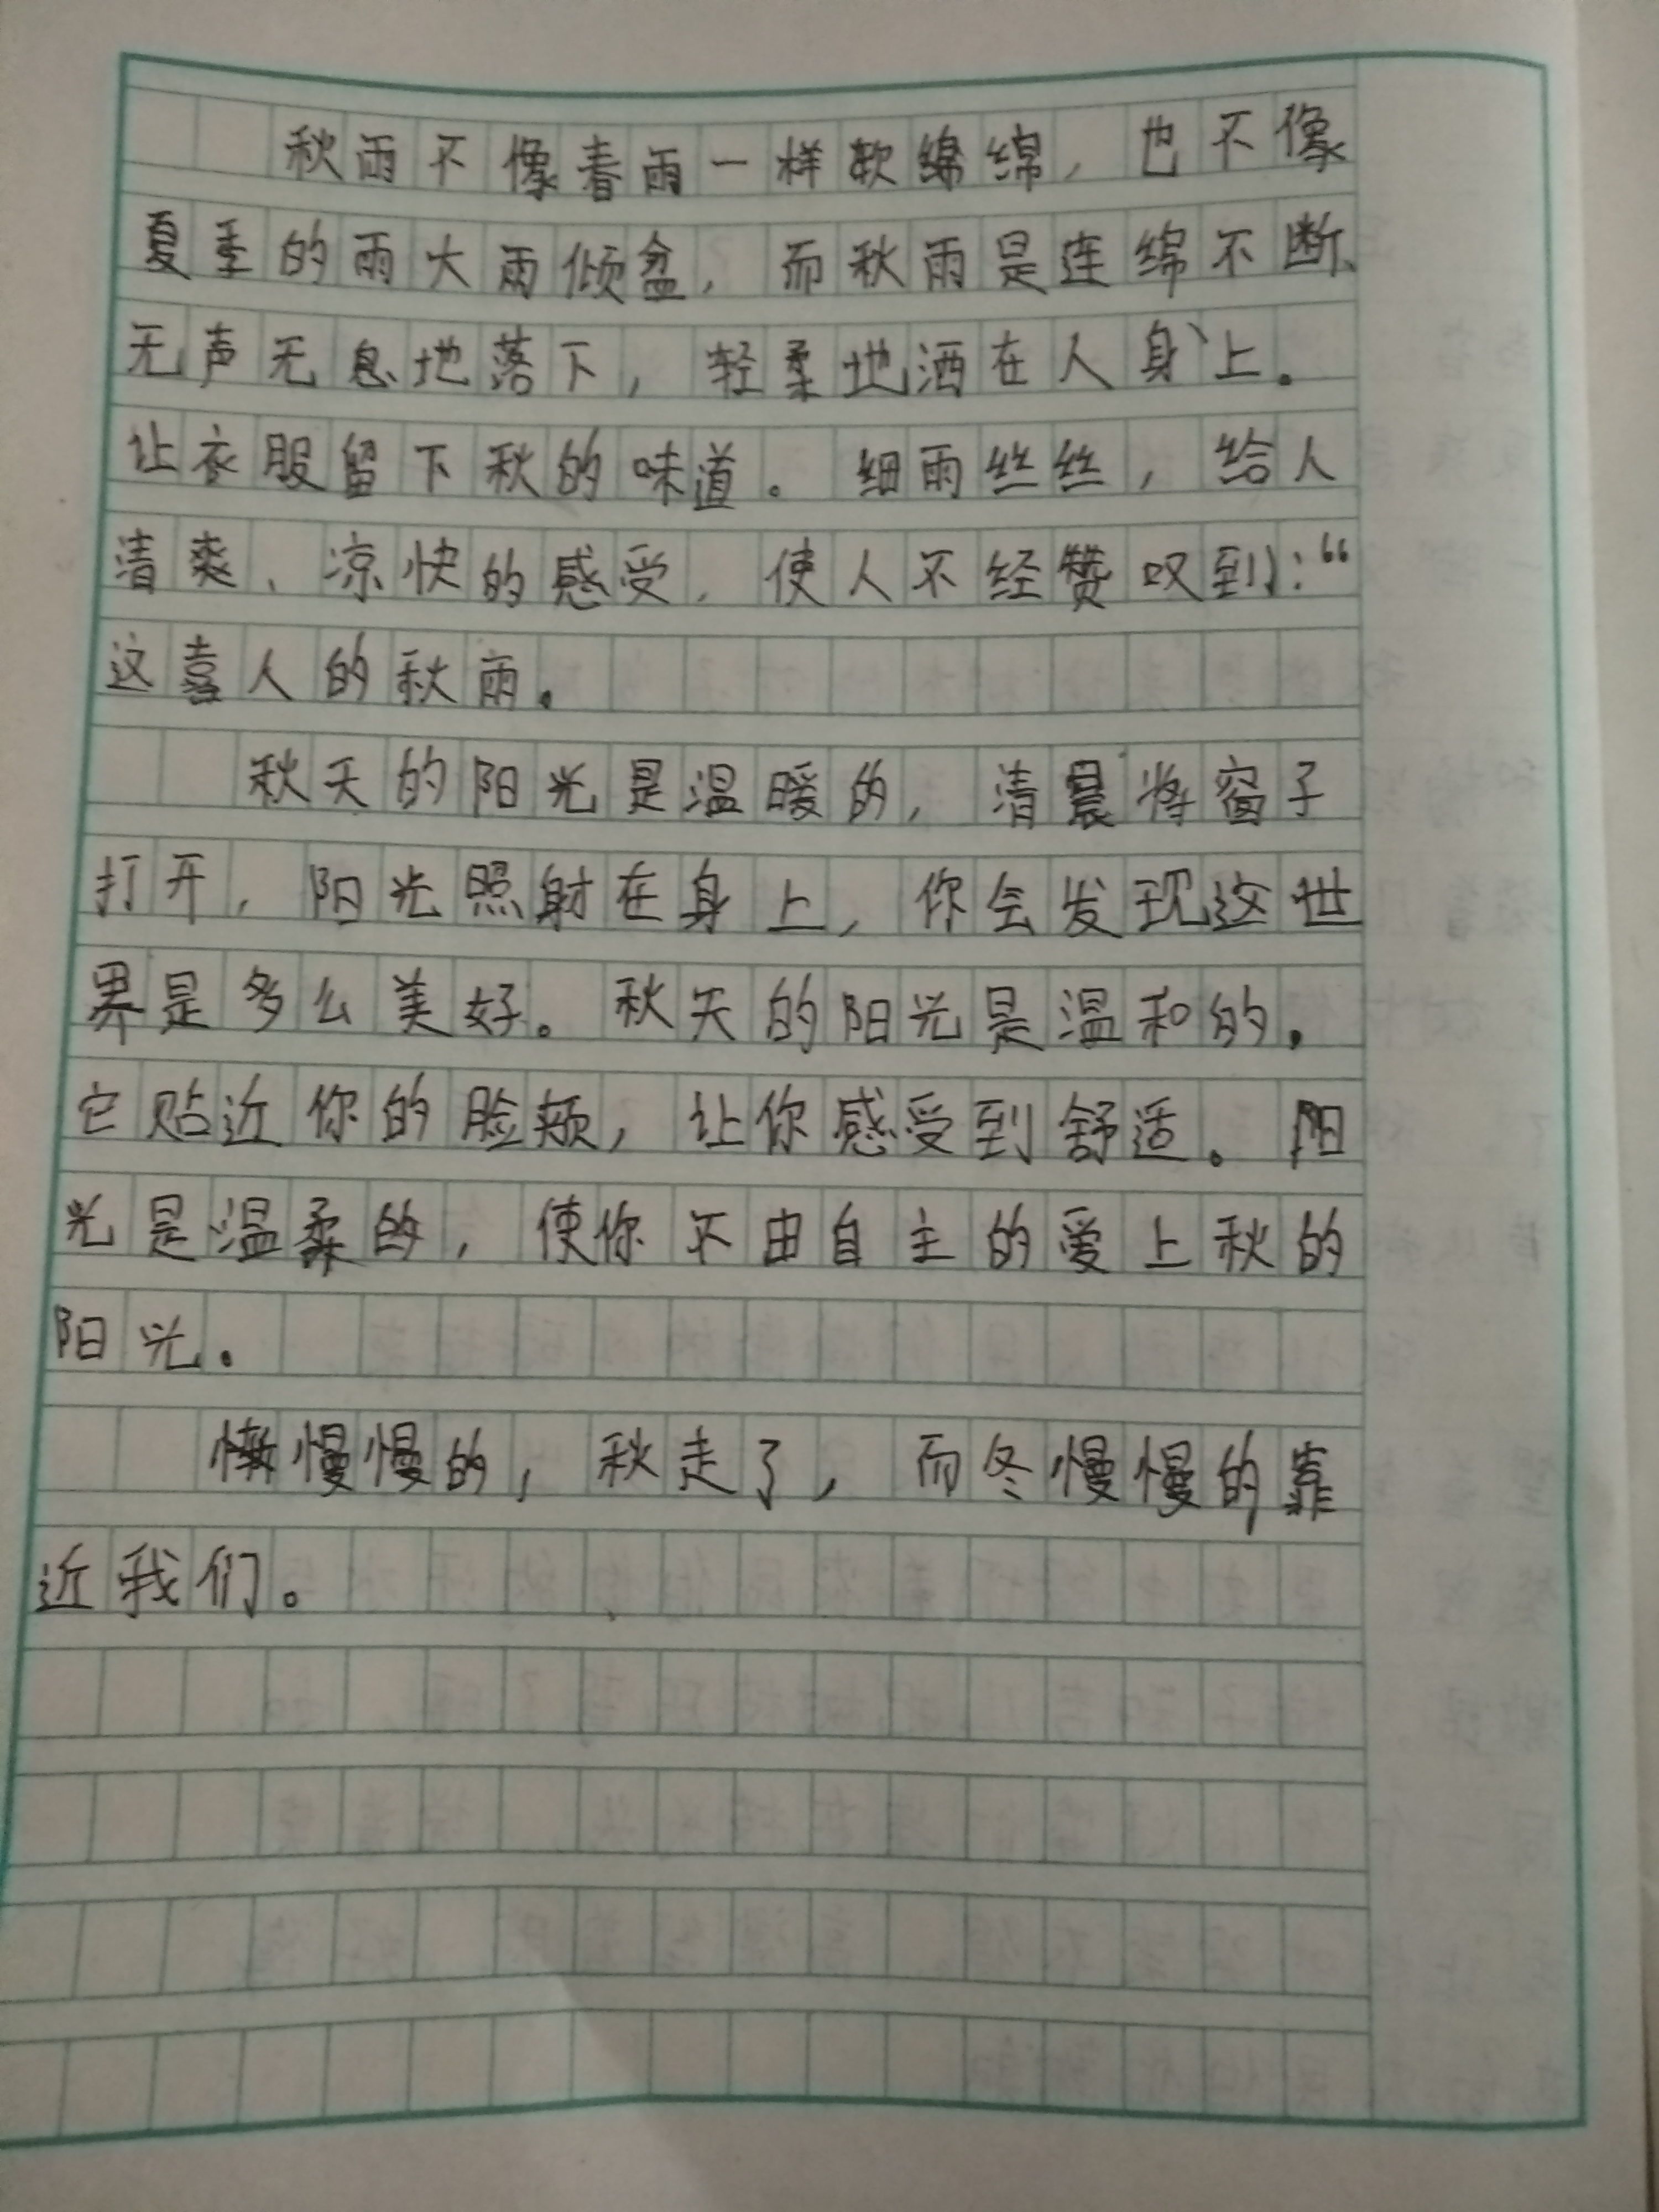 秋雨不像春雨一样软绵绵，也不像
夏季的雨大雨倾盆，而秋雨是连绵不断、
无声无息地落下，轻柔地洒在人身上。
让衣服留下秋的味道。细雨丝丝，给人
清爽、凉快的感受，使人不经赞叹到：“
这喜人的秋雨。
秋天的阳光是温暖的，清晨将窗子
打开，阳光照射在身上，你会发现这世
界是多么美好。秋天的阳光是温和的。
它贴近你的脸颊，让你感受到舒适。阳
光是温柔的，使你不由自主的爱上秋的
阳光。
慢慢的，秋走了，而冬慢慢的靠
近我们。